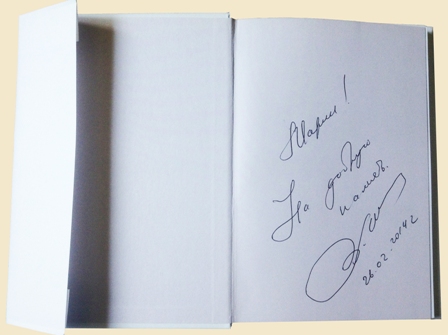 Марии!
На добрую
память.
26.02.2014 г